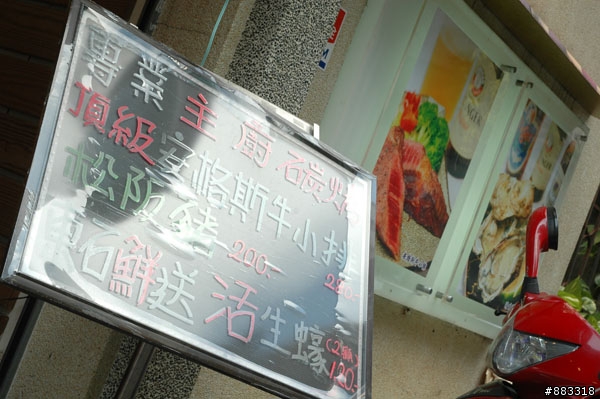 專業主廚碳烤
頂級安格斯牛小排 280-
松阪豬 200-
東石鮮送活生蠔 (2顆) 120-
#883318